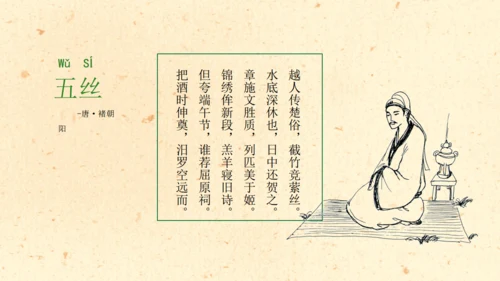 wǔ sī
五丝
-唐·褚朝
阳
越人传楚俗，截竹竞萦丝。
水底深休也，日中还贺之。
章施文胜质，列匹美于姬。
锦绣侔新段，羔羊寝旧诗。
但夸端午节，谁荐屈原祠。
把酒时伸奠，汨罗空远而。